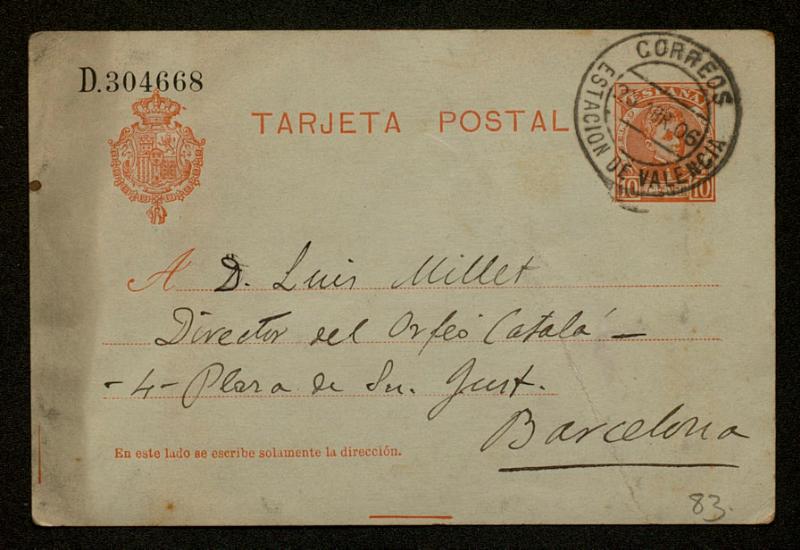 D.304668
TARJETA POSTAL
CORREOS
ESTACION DE VALENCIA
06
ESPAÑA
10 10
A D. Luis Millet
Director del Orfeó Catalá —
-4- Plaza de Sn. Just.
Barcelona
En este lado se escribe solamente la dirección.
83.